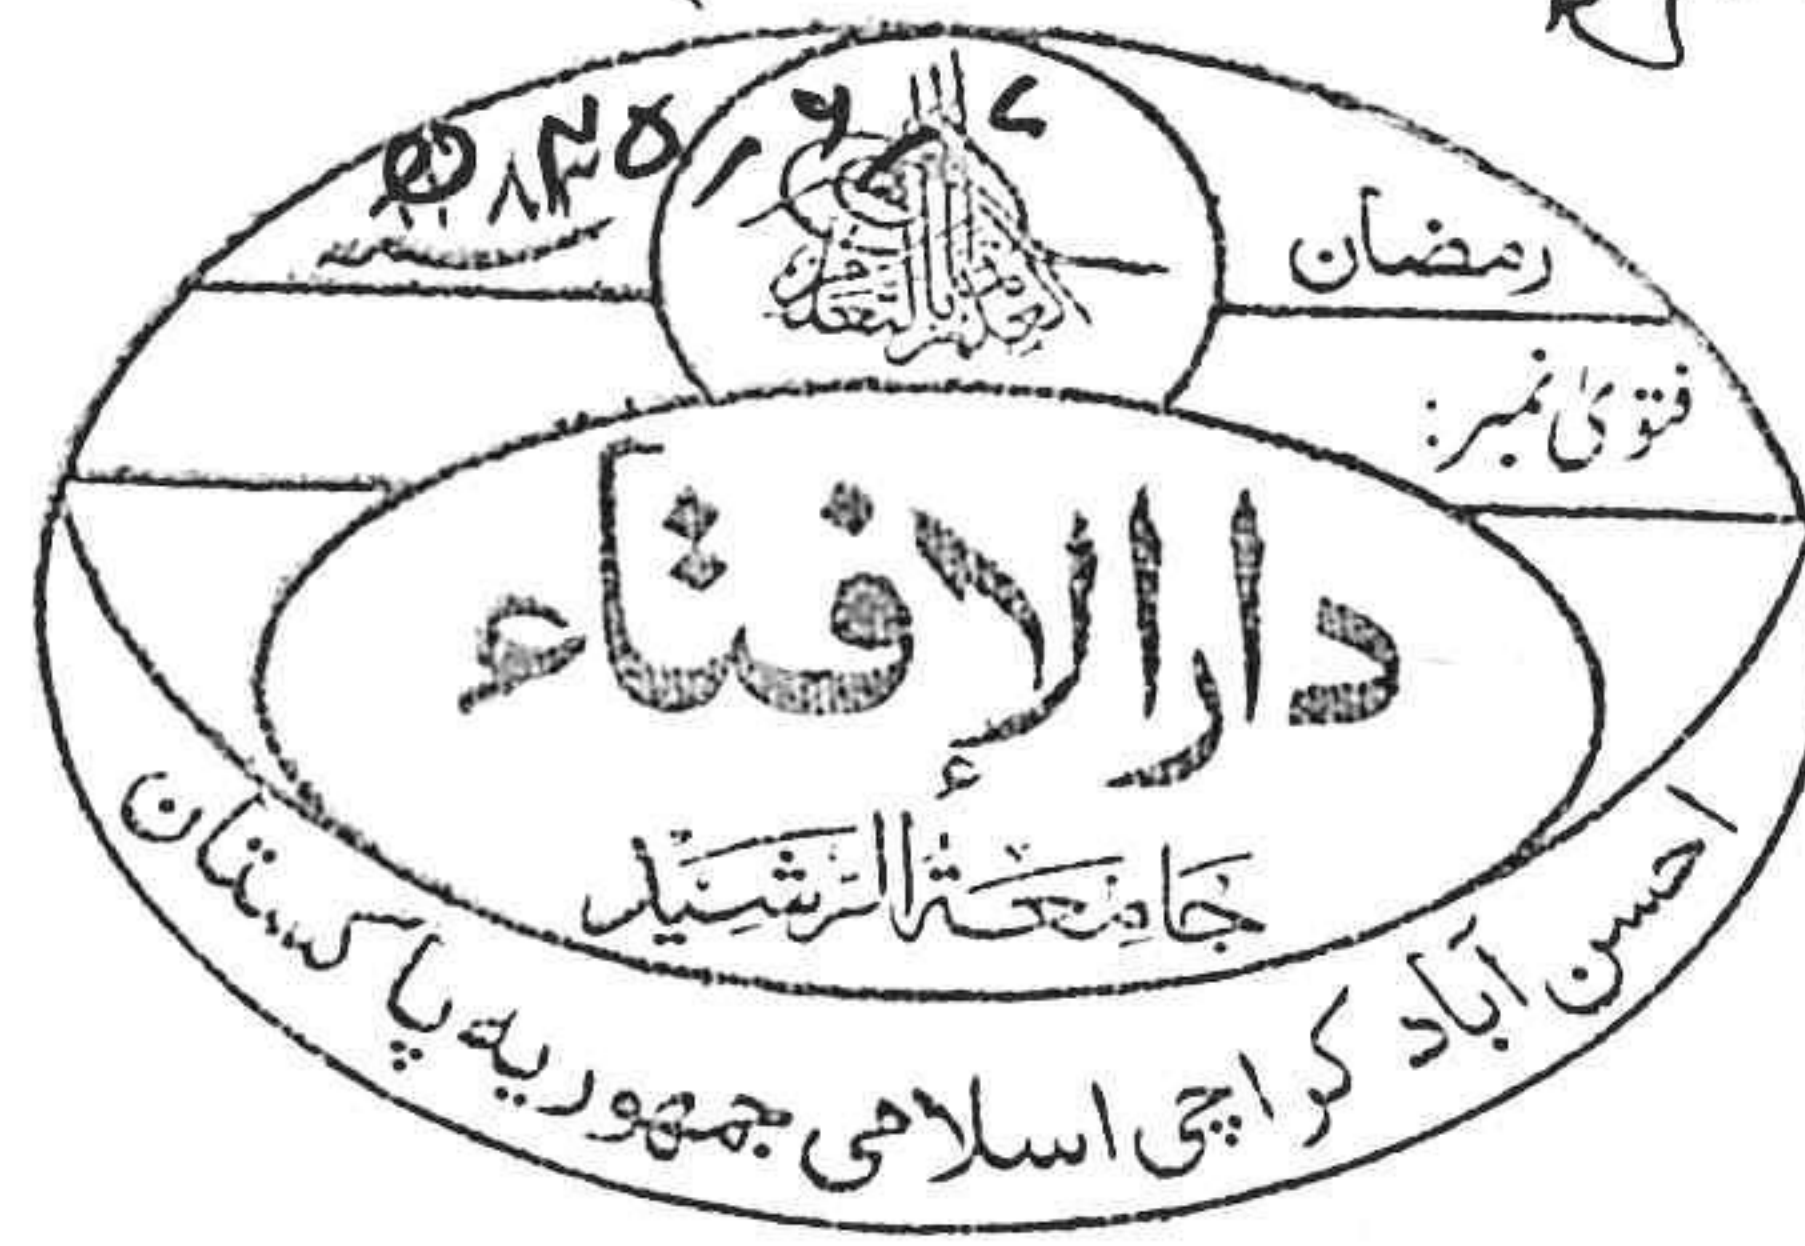 رمضان
فتویٰ نمبر:
دارالإفتاء
جَامِعَۃُ الرَّشِیْد
احسن آباد کراچی اسلامی جمہوریہ پاکستان